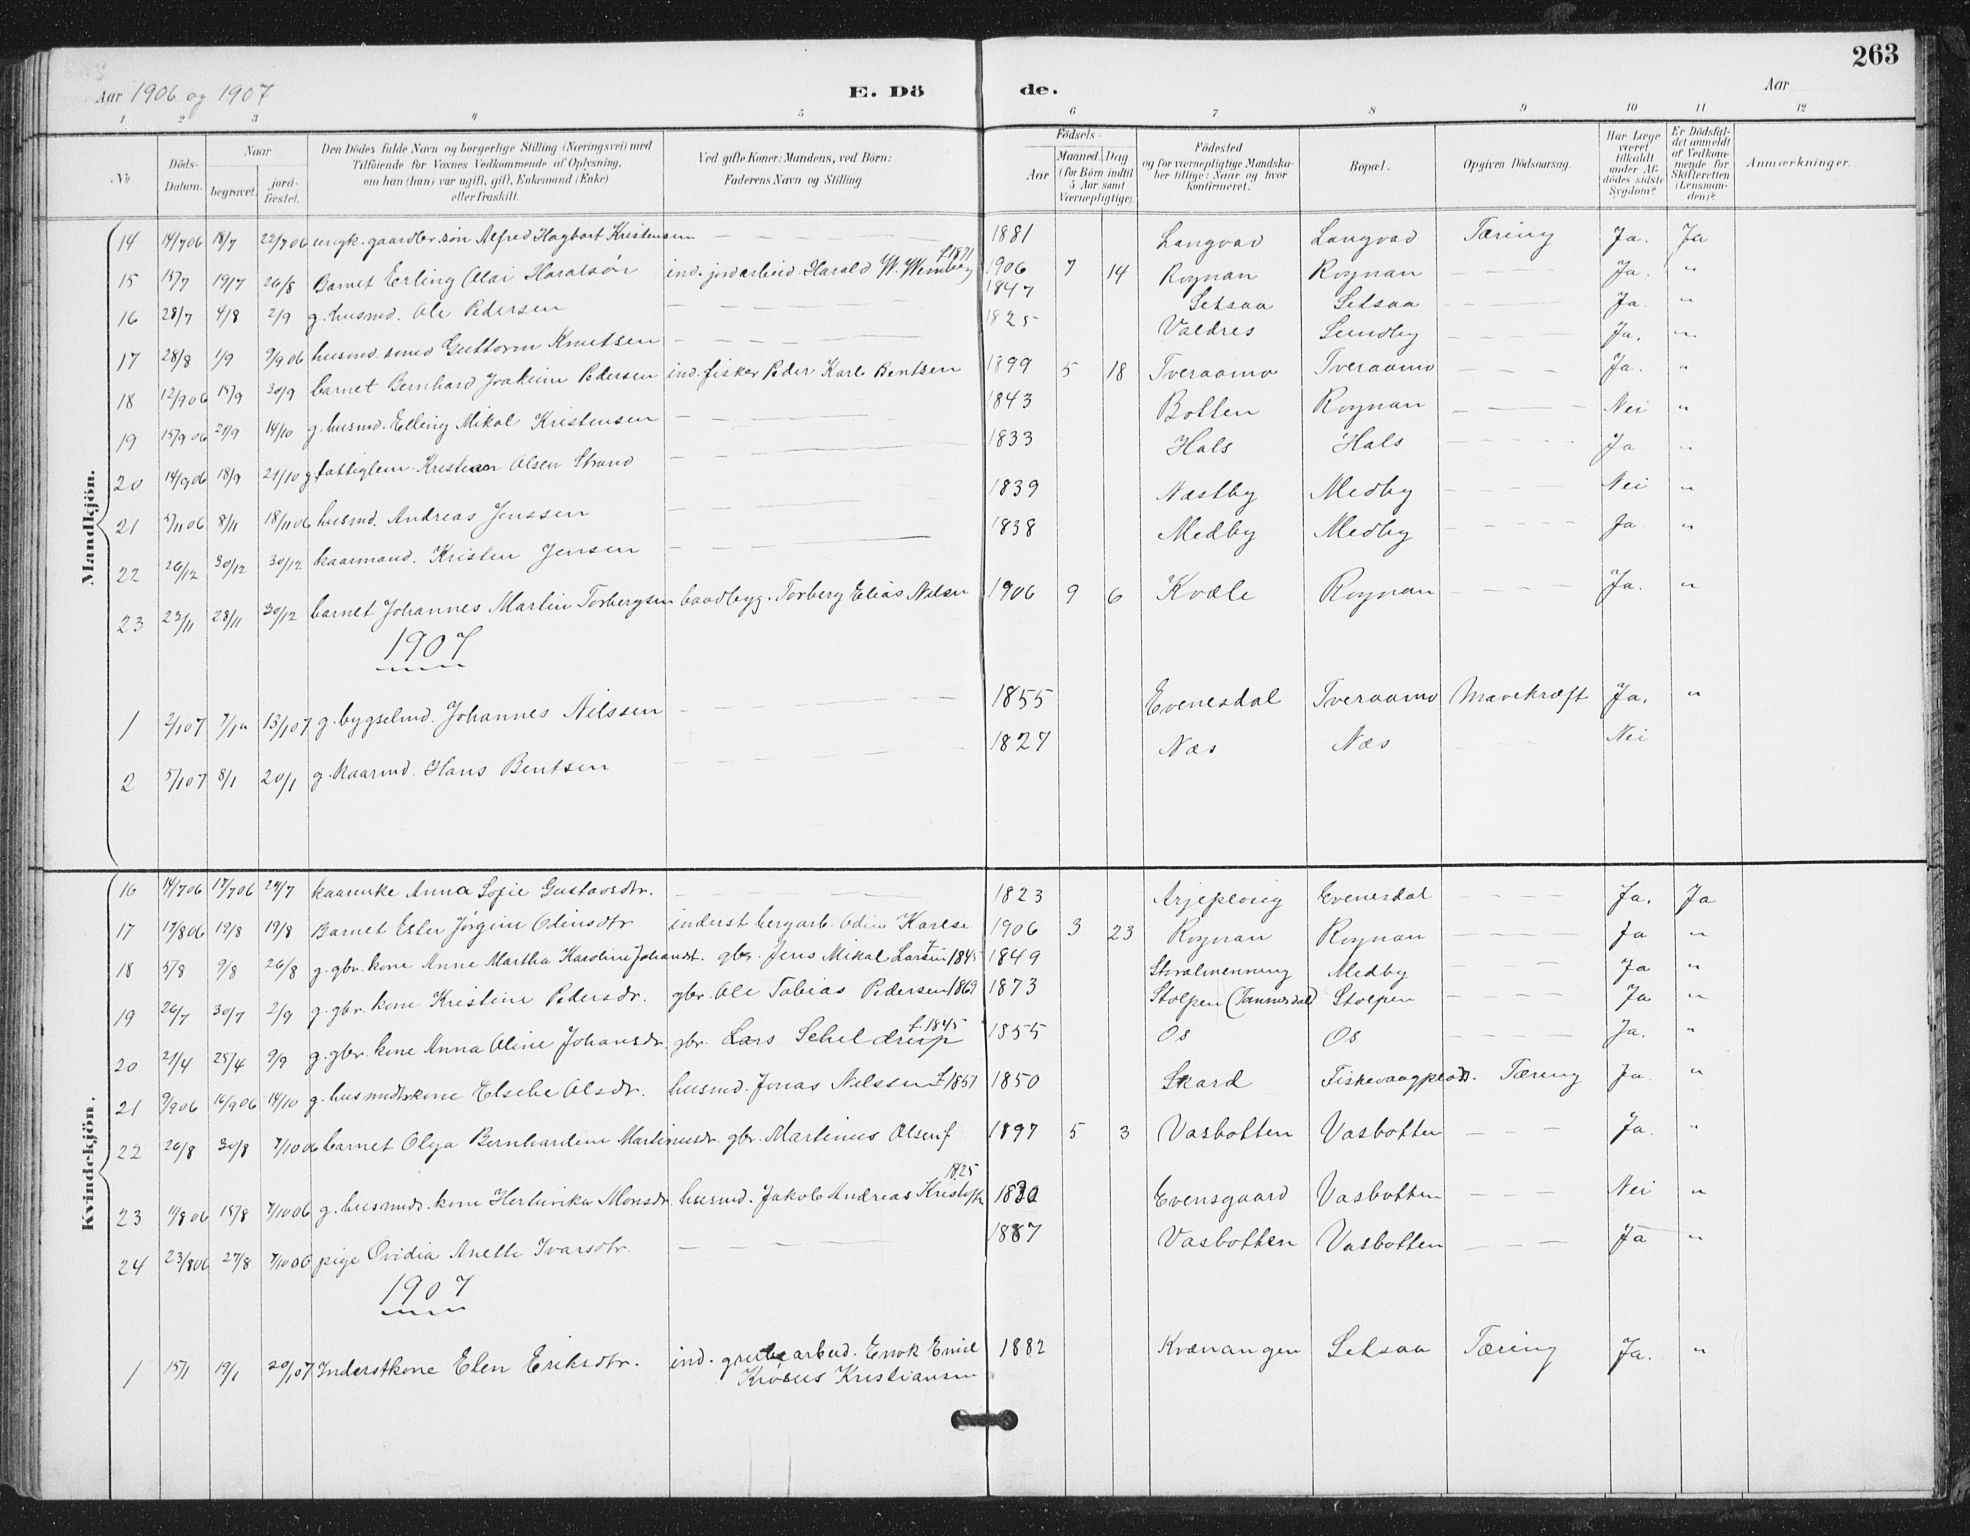 263
Aar 1906 og 1907 E. Dö de. Aar
1 2 3 4 5 6 7 8 9 10 11 12
No Döds-Datum. Naar begravet. jordfæstet. Den Dödes fulde Navn og borgerlige Stilling (Næringsvei) med Tilföiende for Voxnes Vedkommende af Oplysning, om han (hun) var ugift, gift, Enkemand (Enke) eller fraskilt. Ved gifte Koner: Mandens, ved Börn: Faderens Navn og Stilling. Födsels- Aar Maaned Dag (for Börn indtil 5 Aar samt Værnepligtige). Födested og for værnepligtige Mandskaber tillige: Naar og hvor Konfirmeret. Bopæl. Opgiven Dödsaarsag. Har Læge været tilkaldt under Afdödes sidste Sygdom? Er Dödsfaldet anmeldt af Vedkommende for Skifteretten (Lensmanden)? Anmærkninger.
Mandkjön.
14 14/7 06 18/7 22/7 06 ungk. gaardbr. søn Alfred Hagbart Kristensen — — — 1881 Langvad Langvad Tæring Ja. Ja
15 15/7 19/7 26/8 Barnet Erling Olai Haralsøn ind. jordarbeid. Harald W. Wemberg f. 1871 1906 7 14 Rognan Rognan — — — Ja. "
16 28/7 4/8 2/9 g. husmd. Ole Pedersen — — — 1847 Setsaa Setsaa — — — Ja. "
17 28/8 1/9 9/9 06 husmd. smed Guttorm Knutsen — — — 1825 Valdres Sundby — — — Ja. "
18 12/9 06 15/9 30/9 barnet Bernhard Joakim Pedersen ind. fisker Peder Karl Bentsen 1899 5 18 Tveraamo Tveraamo — — — Ja. "
19 15/9 06 21/9 14/10 g. husmd. Elling Mikal Kristensen — — — 1843 Botten Rognan — — — Nei "
20 14/9 06 18/9 21/10 g fattiglem Kristian Olsen Strand — — — 1833 Hals Hals — — — Ja "
21 5/11 06 8/11 18/11 06 husmd. Andreas Jenssen — — — 1839 Næstby Medby — — — Nei "
22 26/12 30/12 30/12 kaarmand. Kristen Jensen — — — 1838 Medby Medby — — — Ja "
23 23/11 28/11 30/12 barnet Johannes Martin Torbergsen baadbyg. Torberg Elias Nilsen 1906 9 6 Kvæle Rognan — — — Ja. "
1907
1 2/1 07 7/1 13/1 07 g. bygselmd. Johannes Nilssen — — — 1855 Evenesdal Tveraamo Mavekræft Ja. "
2 5/1 07 8/1 20/1 g. kaarmd. Hans Bentsen — — — 1827 Næs Næs — — Nei
Kvindekjön.
16 14/7 06 17/7 06 29/7 kaarenke Anna Sofie Gustavsdtr. — — — 1823 Arjeplovig Evenesdal — — — Ja. Ja
17 17/8 06 19/8 19/8 Barnet Ester Jørgine Odinsdtr inderst bergarb. Odin Karlse 1906 3 23 Rognan Rognan — — — Ja "
18 5/8 9/8 26/8 g. gbr. kone Anne Martha Karoline Johansdt. gbr. Jens Mikal Larsen f. 1845 1849 Storalmenning Medby — — — Ja "
19 26/7 30/7 2/9 g. gbr. kone Kristine Pedersdr. gbr. Ole Tobias Pedersen 1869 1873 Stolpen (Tannesdal) Stolpen — — — Ja "
20 21/4 25/4 9/9 g. gbr. kone Anna Oline Johansdr. gbr. Lars Scheldrup f. 1845 1855 Os Os — — — Ja. "
21 9/9 06 16/9 06 14/10 g. husmdskone Elsebe Olsdr. husmd. Jonas Nilssen f. 1851 1850 Skard Fiskevaagplads. Tæring Ja. "
22 26/8 30/8 7/10 06 barnet Olga Bernhardine Martinusdr. gbr. Martinus Olsen 1897 5 3 Vasbotten Vasbotten — — — Ja. "
23 11/8 06 15/8 7/10 06 g. husmds. kone Hertinrika Monsdr. husmd. Jakob Andreas Kristoff. 1825 Evensgaard Vasbotten — — — Nei "
24 23/8 06 27/8 7/10 06 pige Ovidia Anette Ivarsdtr. — — — 1887 Vasbotten Vasbotten — — — Ja "
1907
1 15/1 19/1 20/1 07 Inderstkone Elen Eriksdtr. ind. grubearbeid. Enok Emil 1882 Kvænangen Setsaa Tæring Ja. "
Krøsus Kristiansen